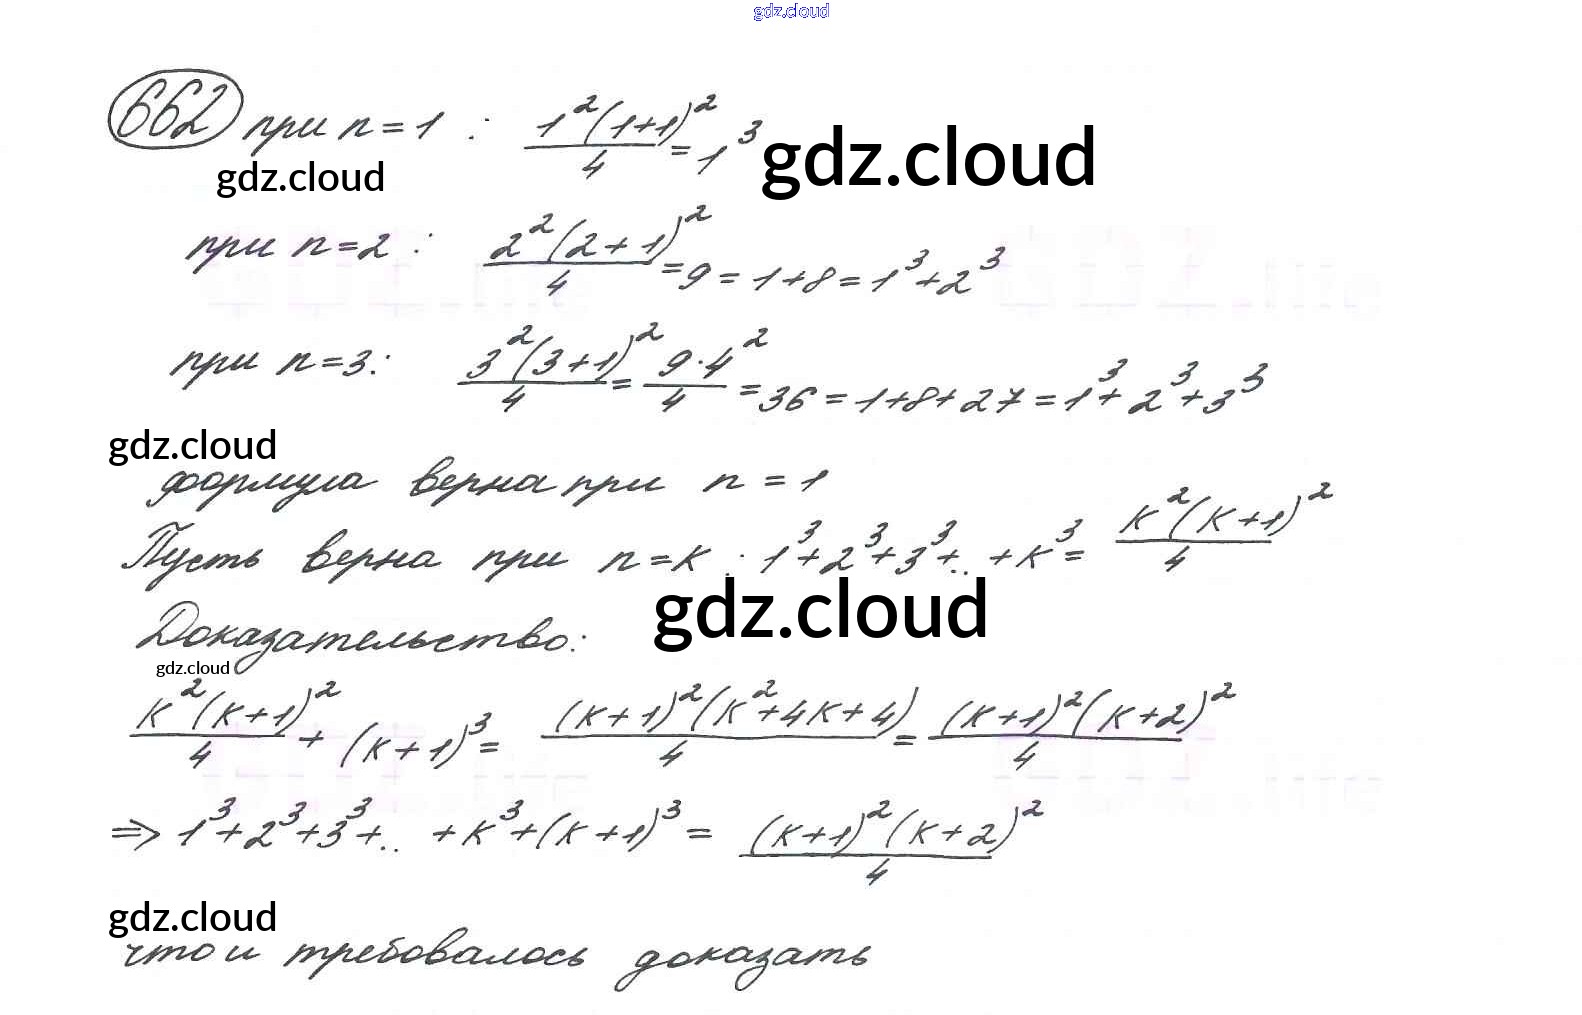 gdz.cloud
662 при n=1 : 1²(1+1)²/4 = 1³
gdz.cloud gdz.cloud
при n=2 : 2²(2+1)²/4 = 9 = 1+8 = 1³+2³
при n=3: 3²(3+1)²/4 = 9·4²/4 = 36 = 1+8+27 = 1³+2³+3³
gdz.cloud
формула верна при n = 1
Пусть верна при n=K : 1³+2³+3³+.. +K³= K²(K+1)²/4
gdz.cloud
Доказательство:
gdz.cloud
K²(K+1)²/4 + (K+1)³= (K+1)²(K²+4K+4)/4 = (K+1)²(K+2)²/4
⇒ 1³+2³+3³+.. +K³+(K+1)³ = (K+1)²(K+2)²/4
gdz.cloud
что и требовалось доказать